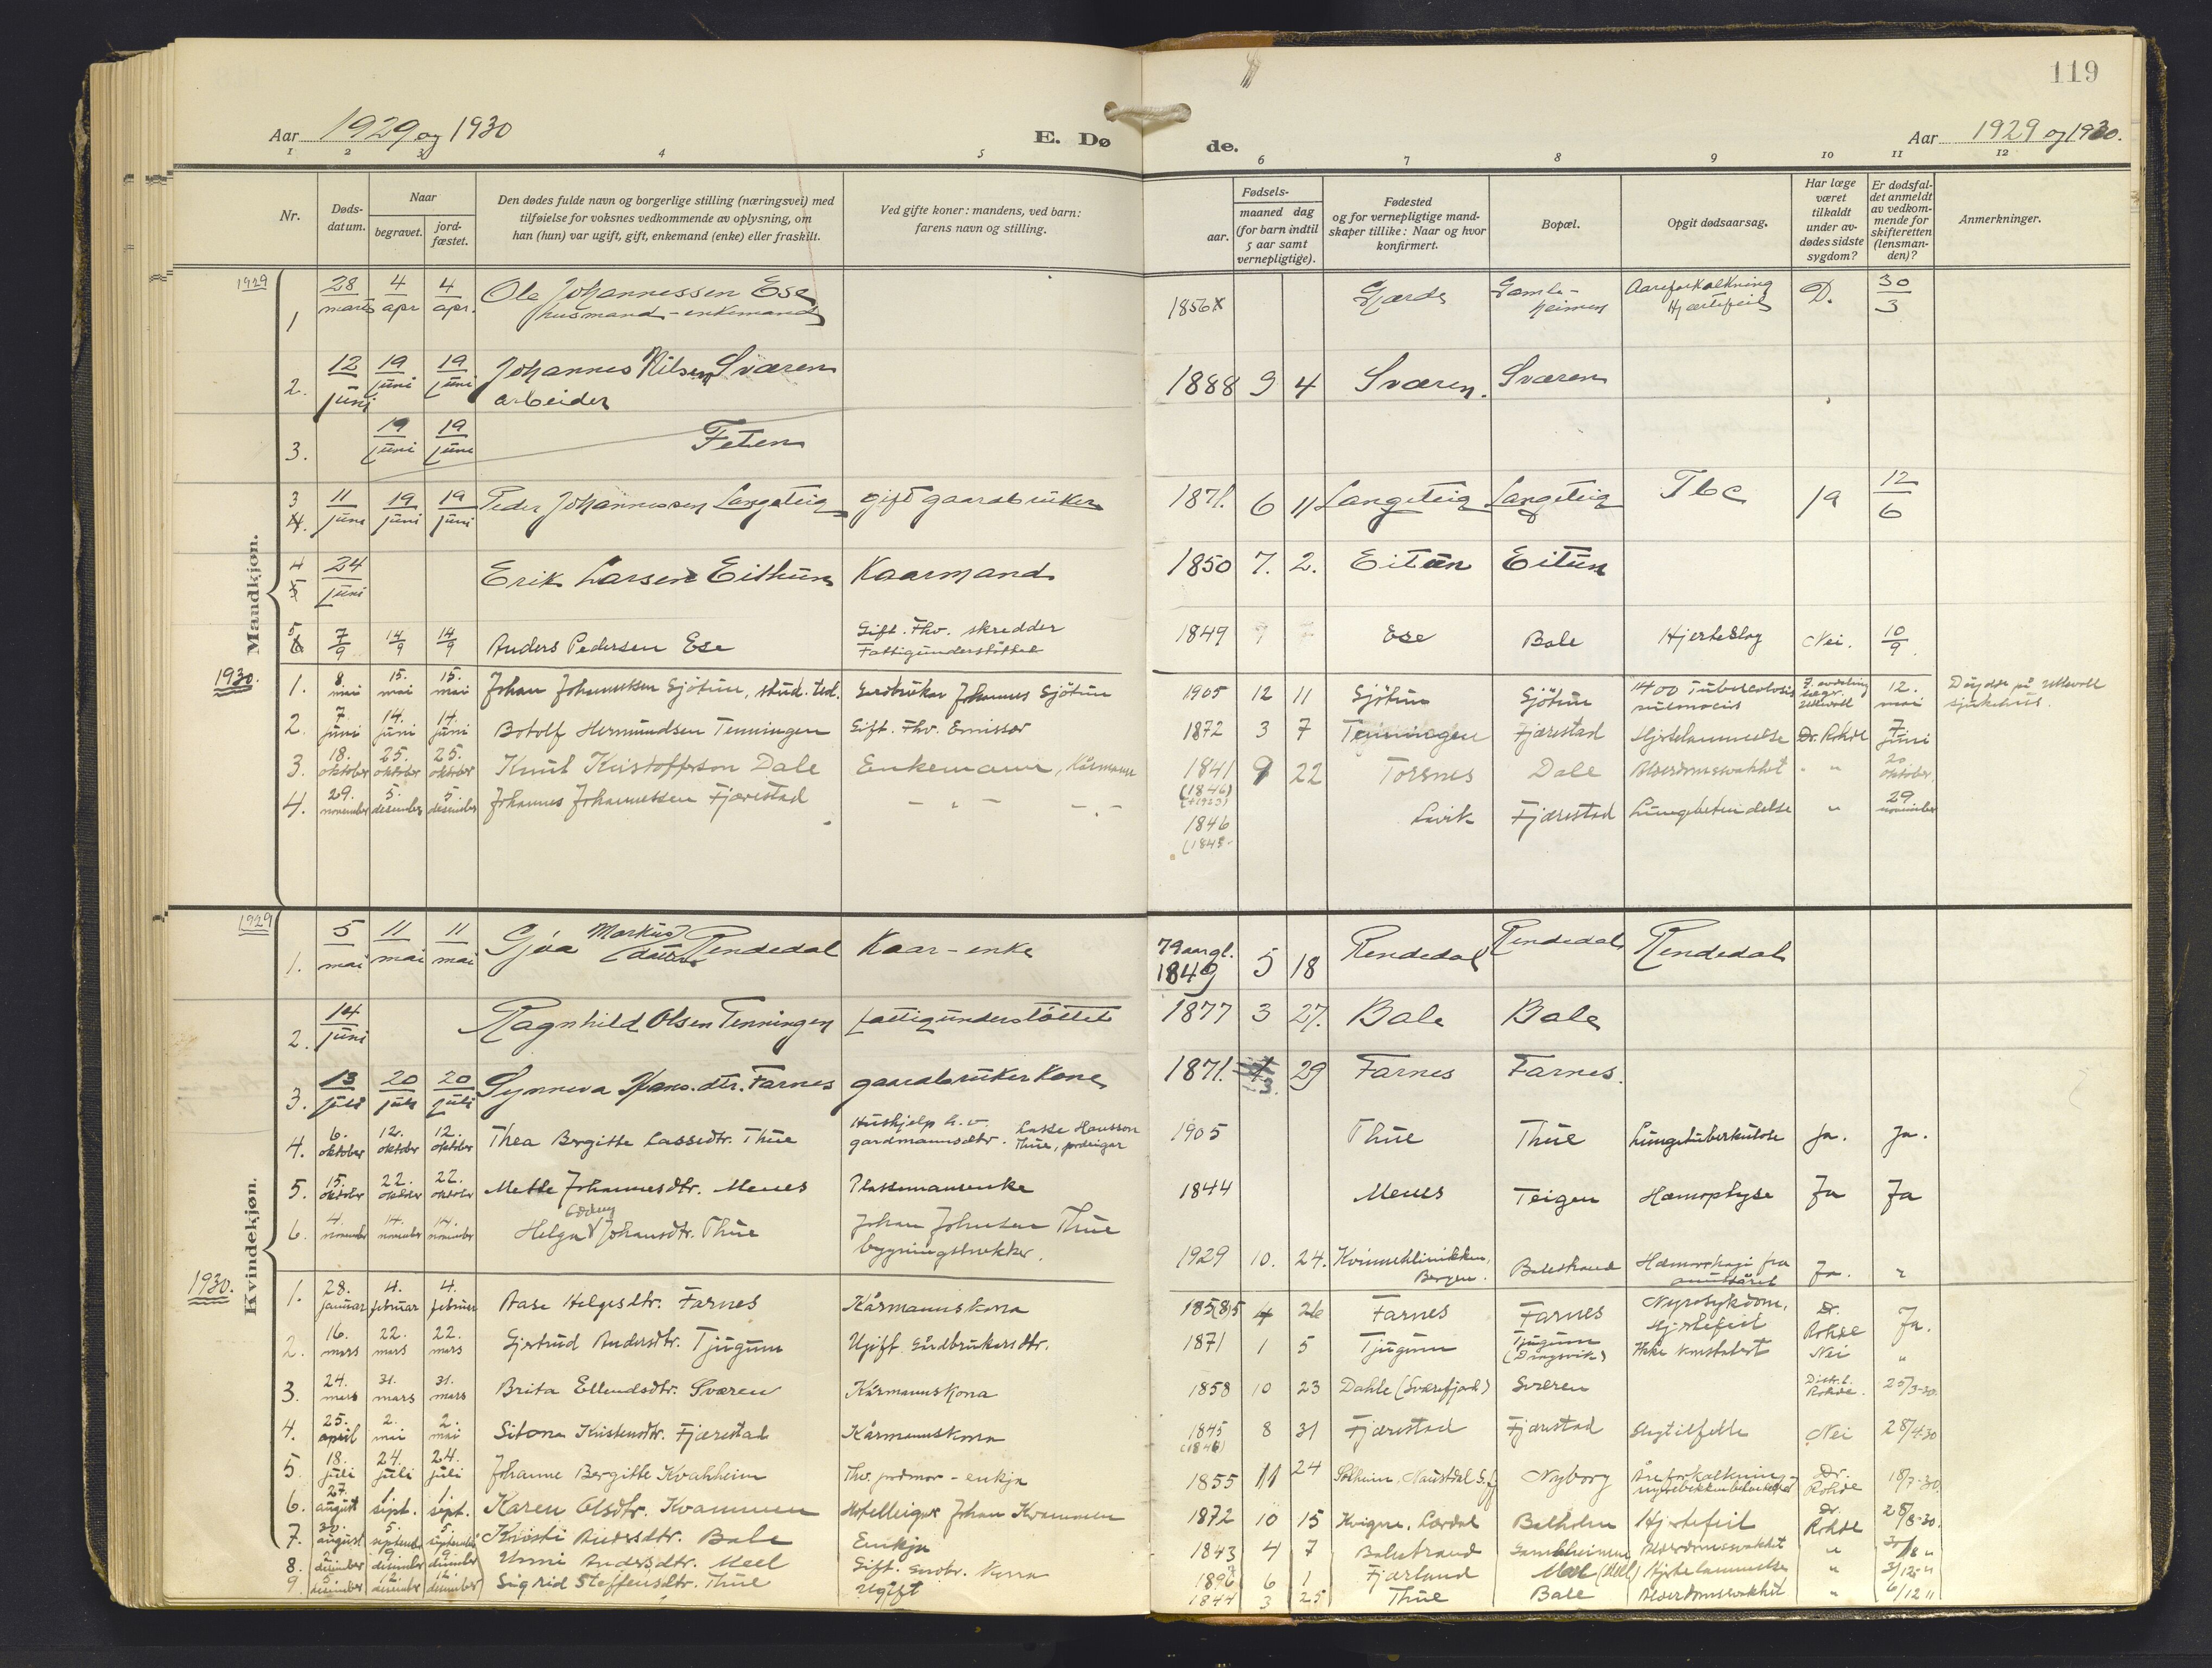 119
Aar 1929 og 1930
E. Døde.
Aar 1929 og 1930.
1 2 3 4 5 6 7 8 9 10 11 12
Nr.
Døds-datum.
Naar
begravet.
jord-fæstet.
Den dødes fulde navn og borgerlige stilling (næringsvei) med
tilføielse for voksnes vedkommende av oplysning, om
han (hun) var ugift, gift, enkemand (enke) eller fraskilt.
Ved gifte koner: mandens, ved barn:
farens navn og stilling.
Fødsels-
aar.
maaned dag
(for barn indtil
5 aar samt
vernepligtige).
Fødested
og for vernepligtige mand-
skaper tillike: Naar og hvor
konfirmert.
Bopæl.
Opgit dødsaarsag.
Har læge
været
tilkaldt
under av-
dødes sidste
sygdom?
Er dødsfal-
det anmeldt
av vedkom-
mende for
skifteretten
(lensman-
den)?
Anmerkninger.
Mandkjøn.
1929
1 28 mars 4 apr 4 apr. Ole Johannessen Ese husmand - enkemand 1856 Gjærde Gamle-heimen Aareforkalkning Hjærtefeil D. 30/3
2. 12 juni 19 juni 19 juni Johannes Nilsen Sværen arbeider 1888 9 4 Sværen. Sværen
3. 19 juni 19 juni Feten
3 4. 11 juni 19 juni 19 juni Peder Johannessen Langeteig gift gaardbruker 1871. 6 11 Langeteig Langeteig Tbc ja 12/6
4 5 24 juni Erik Larsen Eithun Kaarmand 1850 7. 2. Eitun Eitun
5 6 7/9 14/9 14/9 Anders Pedersen Ese Gift. Fhv. skredder Fattigunderstöttet 1849 Ese Bale Hjerteslag Nei. 10/9.
1930.
1. 8. mai 15. mai 15. mai Johan Johannessen Sjötun, stud. Gardbruker Johannes Sjötun 1905 12 11 Sjötun Sjötun Tuberculosis 12. mai Döydde på Ullevoll sjukehus.
2. 7. juni 14. juni 14. juni Botolf Hermundsen Tenningen Gift. Fhv. Emissær 1872 3 7 Tenningen Fjærestad Hjertelammelse Dr. Rohde 7 juni
3. 18. oktober 25. oktober 25. oktober Knut Kristoffson Dale Enkemann, Kårmann 1841 (1846) 9 22 Torsnes Dale Alderdomssvakhet " 20 oktober.
4. 29. november 5. desember 5. desember Johannes Johannessen Fjærestad - " - - " - 1846 (1845 Lavik Fjærestad Lungebetendelse " 29 november
Kvindekjøn.
1929
1. 5 mai 11 mai 11 mai Gjøa Markusdatter Rendedal Kaar-enke 79 aar gl. 1849 5 18 Rendedal Rendedal Rendedal
2. 14 juni Ragnhild Olsen Tenningen fattigunderstöttet 1877 3 27. Bale Bale
3. 13 juli 20 juli 20 juli Synneva Hans.dtr. Farnes gaardbruker Kone 1871. 3. 29 Farnes Farnes.
4. 6. oktober 12. oktober 12. oktober Thea Bergitte Lassedtr. Thue Hushjelp h.v. gardmannsdtr. Lasse Hansson Thue, 1905 Thue Thue Lungetuberkulose Ja. Ja.
5. 15. oktober 22. oktober 22. oktober Mette Johannesdtr. Menes Plassmannsenke 1844 Menes Teigen Hæmoptyse Ja Ja
6. 4. november 14. november 14. november Helga Johansdtr. Thue Johan Johnsen Thue bygningssnekker. 1929 10. 24. Kvinneklinikken, Bergen. Balestrand Ja. "
1930.
1. 28. januar 4. februar 4. februar Aase Helgesdtr. Farnes Kårmannskona 4 26 Farnes Farnes Nyresykdom, Hjertefeil Dr. Rohde Ja.
2. 16. mars 22. mars 22. mars Gjertrud Andersdtr. Tjugum Ugift. Gårdbrukersdtr. 1871 1 5 Tjugum Tjugum (Dragsvik) Ikke konstatert Nei "
3. 24. mars 31. mars 31. mars Brita Ellendsdtr. Sværen Kårmannskona 1858 10 23 Dahle (Sværefjord) Sværen Distr.l. Rohde. 25/3-30.
4. 25. april 2. mai 2. mai Kristensdtr. Fjærestad Kårmannskona 1845 (1846) 8 31 Fjærestad Fjærestad Slagtilfelle Nei 28/4.30
5. 18. juli 24. juli 24. juli Johanne Bergitte Kvahheim Fhv. jordmor - enkja 1855 11 24 Solheim, Naustdal S.f. Nyborg Åreforkalkning Dr. Rohde 18/7-30.
6. 27. august 1. sept. 1. sept. Karen Olsdtr. Kvammen Hotelleigar Johan Kvammen 1872 10 15 Kvigne, Lærdal Balholm Hjertefeil Dr. Rohde 28/8-30.
7. 30. august 5. september 5. september Kristi Andersdtr. Bale Enkja 1843 4 7 Balestrand Gamleheimen Alderdomssvakhet " 30/8 "
8. desember 9 desember 9 desember Unni Andersdtr. Meel Gift. Gardbr. Kona 6 1 Fjærland Meel Hjertelammelse " 3/12 "
9. 5. desember 12. desember 12. desember Sigrid Steffensdtr. Thue Ugift 1844 3 25 Thue Bale Alderdomssvakhet " 6/12 "